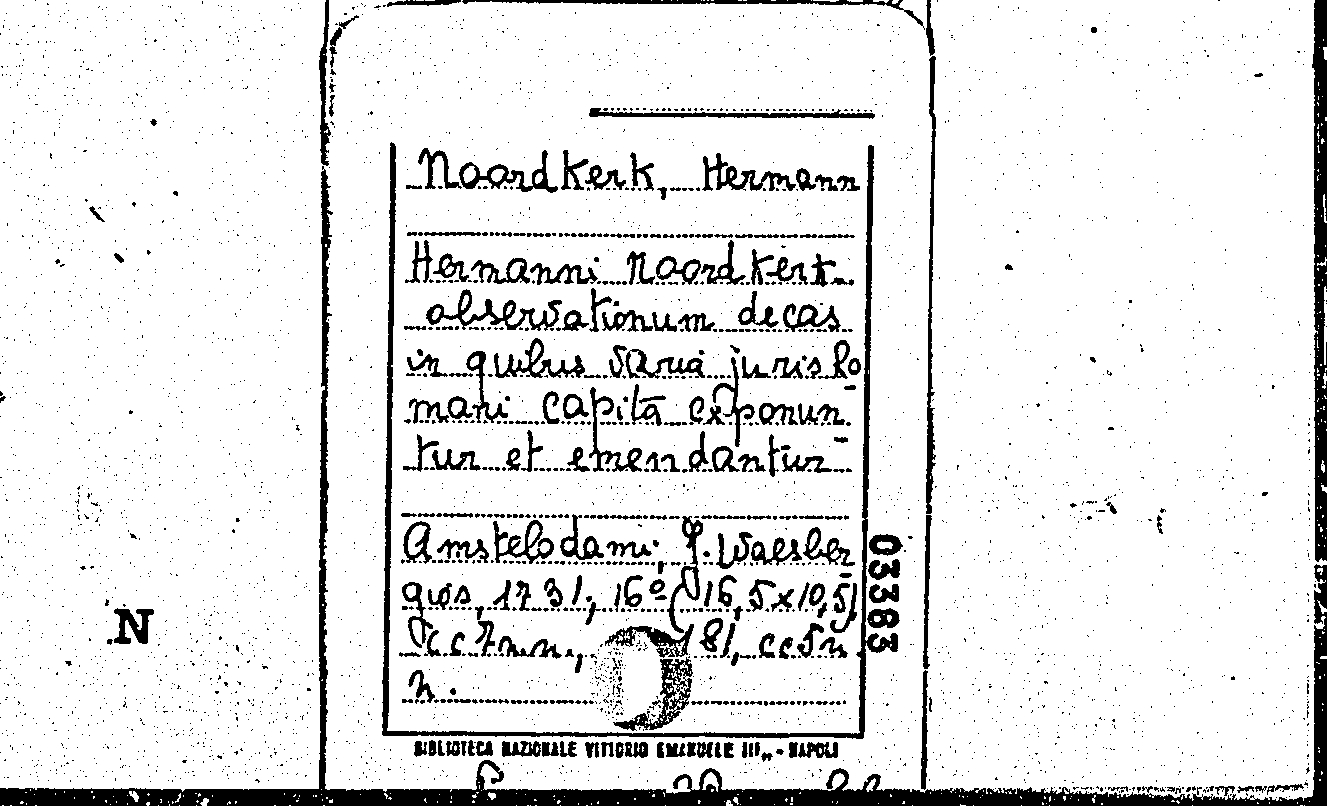 Noordkerk, Hermann
Hermanni Noordkerk
observationum decas
in quibus varia juris Ro-
mani capita exponun-
tur et emendantur
Amstelodami, J. Waesber-
gios, 1731, 16º (16,5x10,5)
cc 7 n.n., 181, cc 5 n.
n.
03383
N
BIBLIOTECA NAZIONALE VITTORIO EMANUELE III„ - NAPOLI